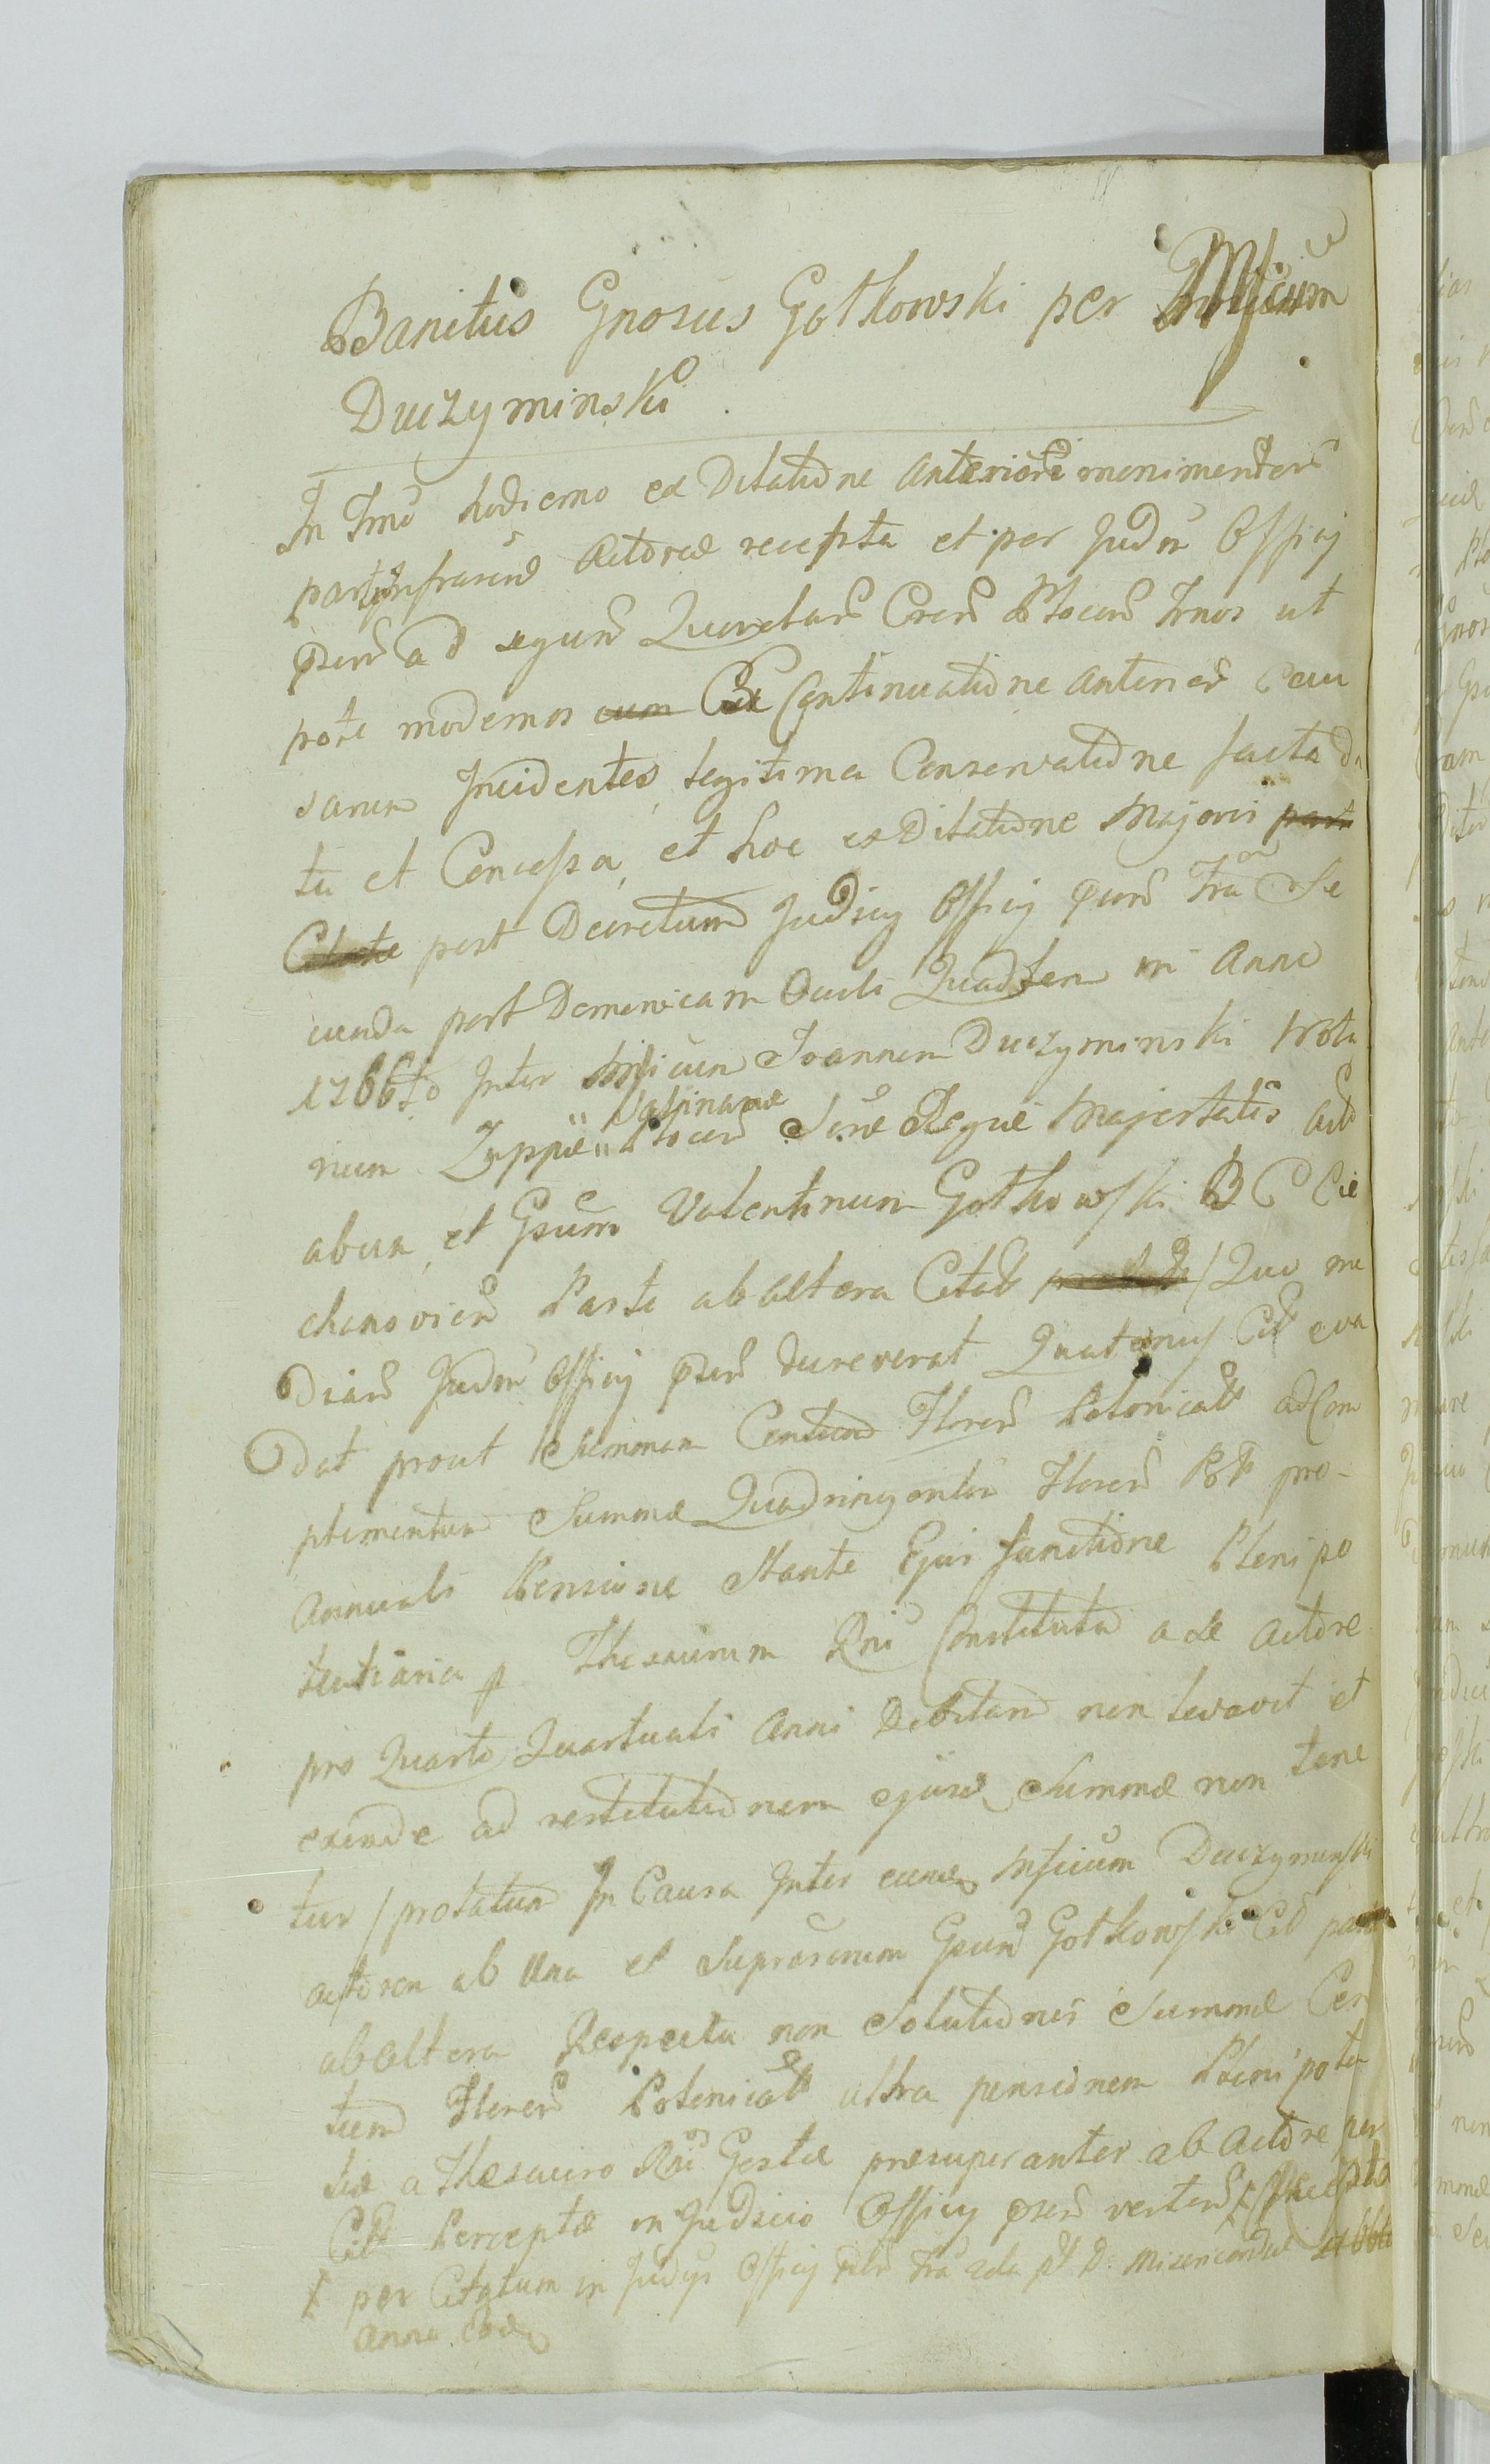 Banitus Gnosus Gotkowski per Mficum
Duczyminski
In Tmo hodierno ex Dilatione anteriore
part Infrascrip Actorea recepta et per Judm Officij
pser ad Querelar Crer Plocen Trnos ut
pote modernos cum Ex Continuatione anterior Cau
sarum Incidentes, legitima Conservatione facta da
ta et Concessa, et hoc ex Dilatione Majori parti
Citate post Decretum Judicij Officij pser Fra Se
cunda post Dominicam Oculi Quadlem in Anno
1766to Inter Mficum Joannem Duczyminski Nota
rium Zuppae Salinarae Plocen Sere Regiae Majestatis act
ab una, et Gsum Valentinum Gotkowski B C Cie
chanovien Parte ab altera Citat / Quo me
dian Judm Officij pser decreverat Quatenus Cit eva
dat prout Summam Centum Floren Polonical ad Com
plementum Summae Quadringentor Floren Pol pro
annuali Pensione Stante Ejus functione Plenipo
tentiaria p Thesaurum Rni Constituta a se actore
pro Quarto Quartuali Anni Debitam non levavit et
exinde ad restitutionem ejusd Summae non tene
tur / prolatum In Causa Inter eund Mficum Duczyminski
actorem ab una et Suprascrum Gsum Gotkowski Cit parte
ab altera Respectu non Solutionis Summae Cen
tum Floren Polonical ultra pensionem Plenipoten
tiae a Thesauro Rni Gestae praesuperanter ab Actore per
Cit Perceptae in Judicio Officij pser verten
per Citatum in Judijs Officij Fra 2da pt D: Misericordiae
Anno Eod